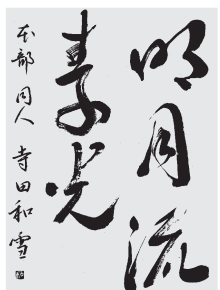 明月流
素光
本部同人 寺田和雪